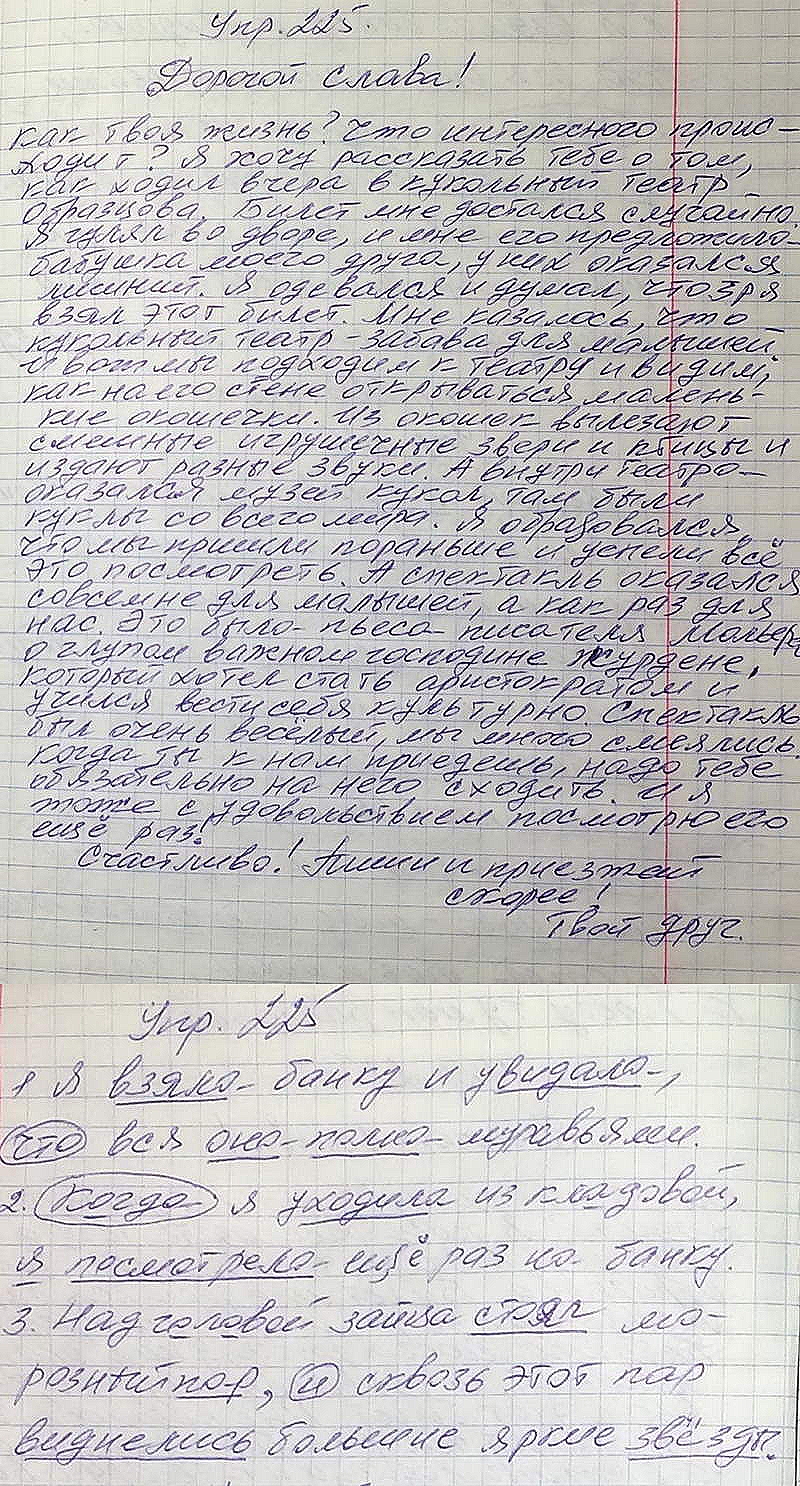 Упр. 225.
Дорогой Слава!
Как твоя жизнь? Что интересного проис-
ходит? Я хочу рассказать тебе о том,
как ходил вчера в кукольный театр
Образцова. Билет мне достался случайно.
Я гулял во дворе, и мне его предложила
бабушка моего друга, у них оказался
лишний. Я одевался и думал, что зря
взял этот билет. Мне казалось, что
кукольный театр - забава для малышей.
И вот мы подходим к театру и видим,
как на его стене открываться малень-
кие окошечки. Из окошек вылезают
смешные игрушечные звери и птицы и
издают разные звуки. А внутри театра
оказался музей кукол, там были
куклы со всего мира. Я образовался,
что мы пришли пораньше и успели всё
это посмотреть. А спектакль оказался
совсем не для малышей, а как раз для
нас. Это была пьеса писателя Мольера
о глупом важном господине Журдене,
который хотел стать аристократом и
учился вести себя культурно. Спектакль
был очень весёлый, мы много смеялись.
Когда ты к нам приедешь, надо тебе
обязательно на него сходить. И я
тоже с удовольствием посмотрю его
ещё раз!
Счастливо! Пиши и приезжай
скорее!
Твой друг.
Упр. 225
1 Я взяла банку и увидала,
что вся она полна муравьями.
2. Когда я уходила из кладовой,
я посмотрела ещё раз на банку.
3. Над головой зайца стоял мо-
розный пар, и сквозь этот пар
виднелись большие яркие звёзды.